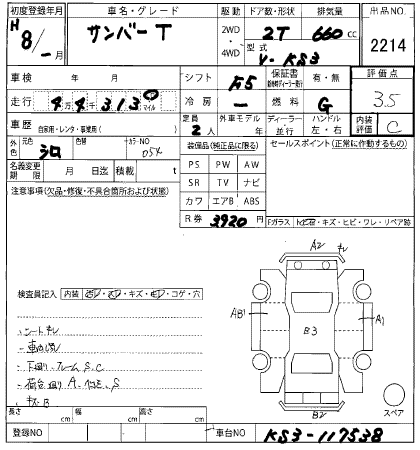 初度登録年月 車名・グレード 駆動 ドア数・形状 排気量 出品NO
H8/-月 サンバーT 2WD・4WD 2T 660 cc 2214
型式 V-KS3
車検 年 月 シフト F5 保証書 有・無 評価点
走行 4万4千3130 マイル 冷房 一 燃料 G 3.5
車歴 自家用・レンタ・事業用( ) 定員 2人 外車モデル 年 ディーラー・並行 ハンドル 左・右 内装評価 C
外色 元色 シロ 色替 カラーNO 054
装備品(純正品に限る) セールスポイント(正常に作動するもの)
名義変更期限 月 日迄 積載 t
PS PW AW
SR TV ナビ
カワ エアB ABS
注意事項(欠品・修復・不具合箇所および状態)
R券 3920円
Fガラス トビ石・キズ・ヒビ・ワレ・リペア跡
A2 キレ
検査員記入 内装 キレ・コゲ・穴
AB1 B3 A1
シートキレ
車内汚れ
下廻り、フレームS、C
荷台廻りA、S
キズB
B2
スペア
長さ cm 幅 cm 高さ cm
登録NO 車台NO KS3-117538